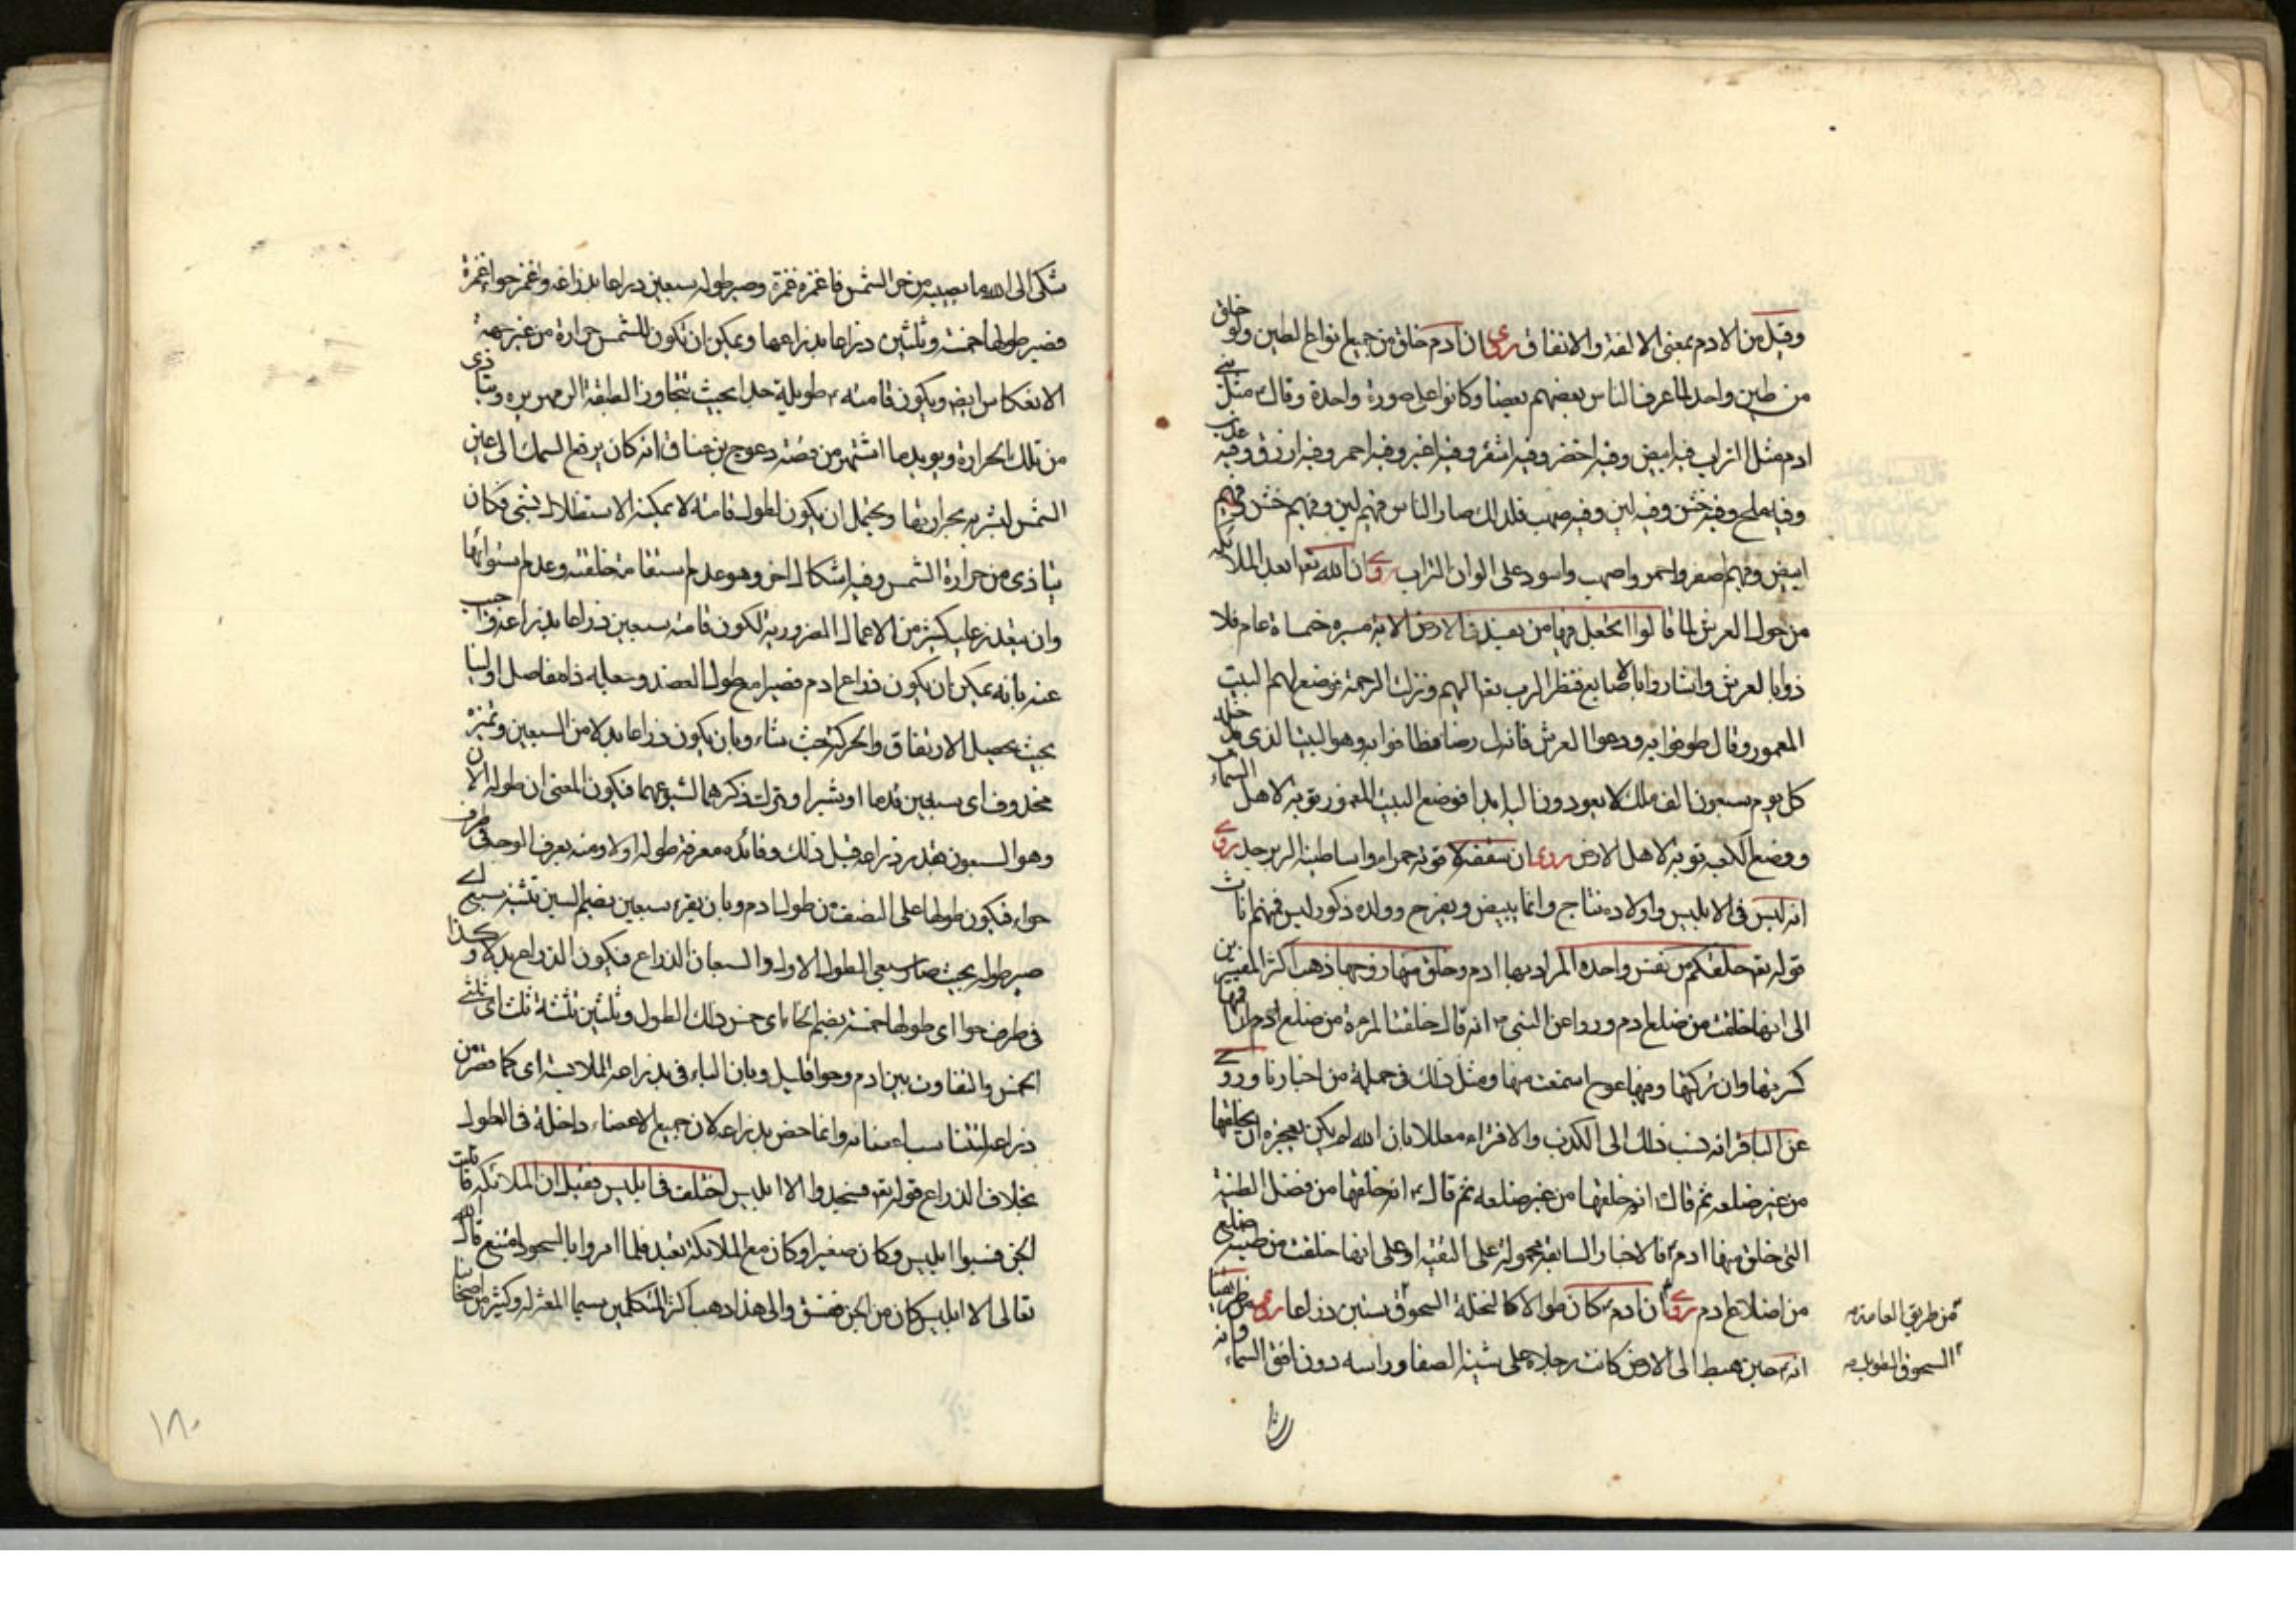 وقيل من الادم بمعنى الالفة والاتفاق روى ان ادم خلق من جميع انواع الطين ولو خلق
من طين واحد لما عرف الناس بعضهم بعضا وكانوا على صورة واحدة وقال مثل بني
ادم مثل التراب فيه ابيض وفيه اخضر وفيه اشقر وفيه اغبر وفيه احمر وفيه ازرق وفيه عذب
وفيه ملح وفيه خشن وفيه لين وفيه صهب فلذلك صار الناس فيهم لين وفيهم خشن وفيهم
ابيض وفيهم اصفر واحمر واصهب واسود على الوان التراب روى ان الله تعا بعد الملائكة
من حول العرش لما قالوا اتجعل فيها من يفسد في الارض الاية مسيرة خمسماة عام فلا
ذوا بالعرش واشاروا بالاصابع فنظر الرب تعا اليهم ونزلت الرحمة فوضع لهم البيت
المعمور وقال طوفوا به ودعوا العرش فانه لي رضا فطافوا به وهو البيت الذي يدخله
كل يوم سبعون الف ملك لا يعودون اليه ابدا فوضع البيت المعمور توبة لاهل السماء
ووضع الكعبة توبة لاهل الارض روى ان سقفه ياقوتة حمراء واساطينه الزبرجد روى
انه ليس في الابليس واولاده نتاج وانما يبيض ويفرخ وولده ذكور ليس فيهم اناث
قوله تع خلقكم من نفس واحدة المراد بها ادم وخلق منها زوجها ذهب اكثر المفسرين
الى انها خلقت من ضلع ادم ورووا عن النبي انه قال خلقت المرءة من ضلع ادم ان اقمتها
كسرتها وان تركتها وفيها عوج استمتعت بها ومثل ذلك في جملة من اخبارنا وروى
عن الباقر انه نسب ذلك الى الكذب والافتراء معللا بان الله لم يكن يعجزه ان يخلقها
من غير ضلعه ثم قال انه خلقها من غير ضلعه ثم قال انه خلقها من فضل الطينة
التي خلق منها ادم فالاخبار السابقة محمولة على التقية او على انها خلقت من طينة ضلع
من اضلاع ادم روى ان ادم كان طوالا كالنخلة السحوق ستين ذراعا روى من طريقنا
انه حين هبط الى الارض كانت رجلاه على ثنية الصفا وراسه دون افق السماء وانه
من طريق العامة
السحوق الطويلة
شكى الى الله ما يصيبه من حر الشمس فاغمزه غمزة وصير طوله سبعين ذراعا بذراعه وغمز حواء غمزة
فصير طولها خمسة وثلثين ذراعا بذراعها ويمكن ان تكون للشمس حرارة من غير جهة
الانعكاس ايضا ويكون قامته طويلة جدا بحيث تتجاوز الطبقة الزمهريرية ويتاذى
من تلك الحرارة ويويده ما اشتهر من قصة عوج بن عناق انه كان يرفع السمك الى عين
الشمس ليشويه بحرارتها ويحتمل ان يكون لطول قامته لا يمكنه الاستظلال بشي فكان
يتاذى من حرارة الشمس وفيه اشكال اخر وهو عدم استقامة خلقته وعدم استوائها
وان يتعذر عليه كثير من الاعمال الضرورية لكون قامته سبعين ذراعا بذراعه واجيب
عنه بانه يمكن ان يكون ذراع ادم قصيرا مع طول العضد وجعله ذا مفاصل او لينا
بحيث يحصل الارتفاق والحركة حيث شاء وبان يكون ذراعا بدلا من السبعين وتميزه
محذوف اى سبعين قدما او شبرا وترك ذكرهما لشيوعهما فيكون المعنى ان طوله الان
وهو السبعون بقدر ذراعه قبل ذلك وفائده معرفة طوله اولا ومنه يعرف الوجه في طرف
حواء فيكون طولها على النصف من طول ادم وبان يقرء سبعين بضم السين تثنية سبع اى
صير طوله بحيث صار سبعي الطول الاول والسبعان الذراع فيكون الذراع بدلا وكذا
في طرف حوا اى طولها خمسة بضم الخاء اى خمس ذلك الطول وثلثين تثنية ثلث اى ثلثي
الخمس والتفاوت بين ادم وحوا قليل وبان الباء في بذراعه للملابسة اى كما قصر من
ذراعه لتناسب اعضائه وانما خص بذراعه لان جميع الاعضاء داخلة في الطول
بخلاف الذراع قوله تعا فسجدوا الا ابليس اختلف في ابليس فقيل ان الملائكة قاتلت
الجن فسبوا ابليس وكان صغيرا وكان مع الملائكة تعبد فلما امروا بالسجود امتنع قال الله
تعالى الا ابليس كان من الجن ففسق والى هذا ذهب اكثر المتكلمين سيما المعتزلة وكثير من اصحابنا
١٨٠